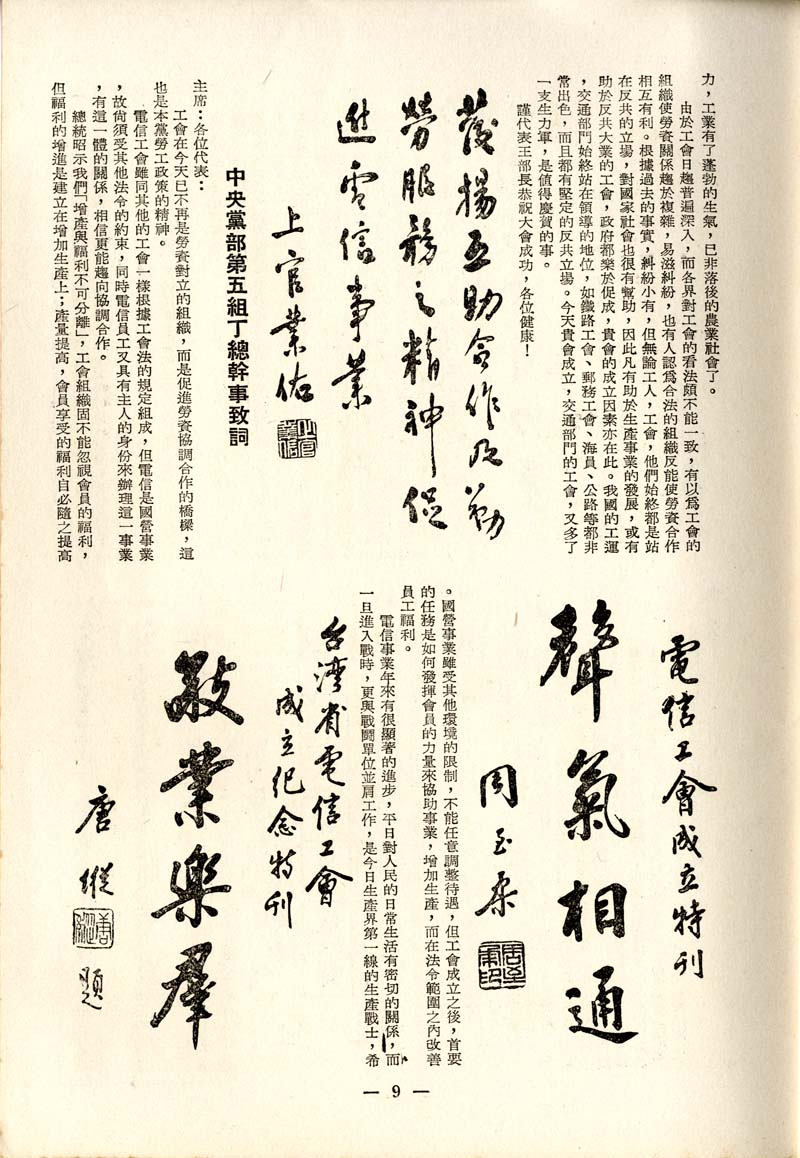 力，工業有了蓬勃的生氣，已非落後的農業社會了。
由於工會日趨普遍深入，而各界對工會的看法頗不能一致，有以爲工會的
組織使勞資關係趨於複雜，易滋糾紛，也有人認爲合法的組織反能使勞資合作
相互有利。根據過去的事實，糾紛小有，但無論工人，工會，他們始終都是站
在反共的立場，對國家社會也很有幫助，因此凡有助於生產事業的發展，或有
助於反共大業的工會，政府都樂於促成，貴會的成立因素亦在此。我國的工運
，交通部門始終站在領導的地位，如鐵路工會、郵務工會、海員、公路等都非
常出色，而且都有堅定的反共立場。今天貴會成立，交通部門的工會，又多了
一支生力軍，是值得慶賀的事。
謹代表王部長恭祝大會成功，各位健康！
發揚互助合作及勤
勞服務之精神促
進電信事業
上官業佑
中央黨部第五組丁總幹事致詞
主席：各位代表：
工會在今天已不再是勞資對立的組織，而是促進勞資協調合作的橋樑，這
也是本黨勞工政策的精神。
電信工會雖同其他的工會一樣根據工會法的規定組成，但電信是國營事業
，故尙須受其他法令的約束，同時電信員工又具有主人的身份來辦理這一事業
，有這一體的關係，相信更能趨向協調合作。
總統昭示我們「增產與福利不可分離」，工會組織固不能忽視會員的福利，
但福利的增進是建立在增加生產上；產量提高，會員享受的福利自必隨之提高
電信工會成立特刊
聲氣相通
周至柔
周至柔印
。國營事業雖受其他環境的限制，不能任意調整待遇，但工會成立之後，首要
的任務是如何發揮會員的力量來協助事業，增加生產，而在法令範圍之內改善
員工福利。
電信事業年來有很顯著的進步，平日對人民的日常生活有密切的關係，而
一旦進入戰時，更與戰鬪單位並肩工作，是今日生產界第一線的生產戰士，希
台灣省電信工會
成立紀念特刊
敬業樂羣
唐縱
唐縱
題
— 9 —